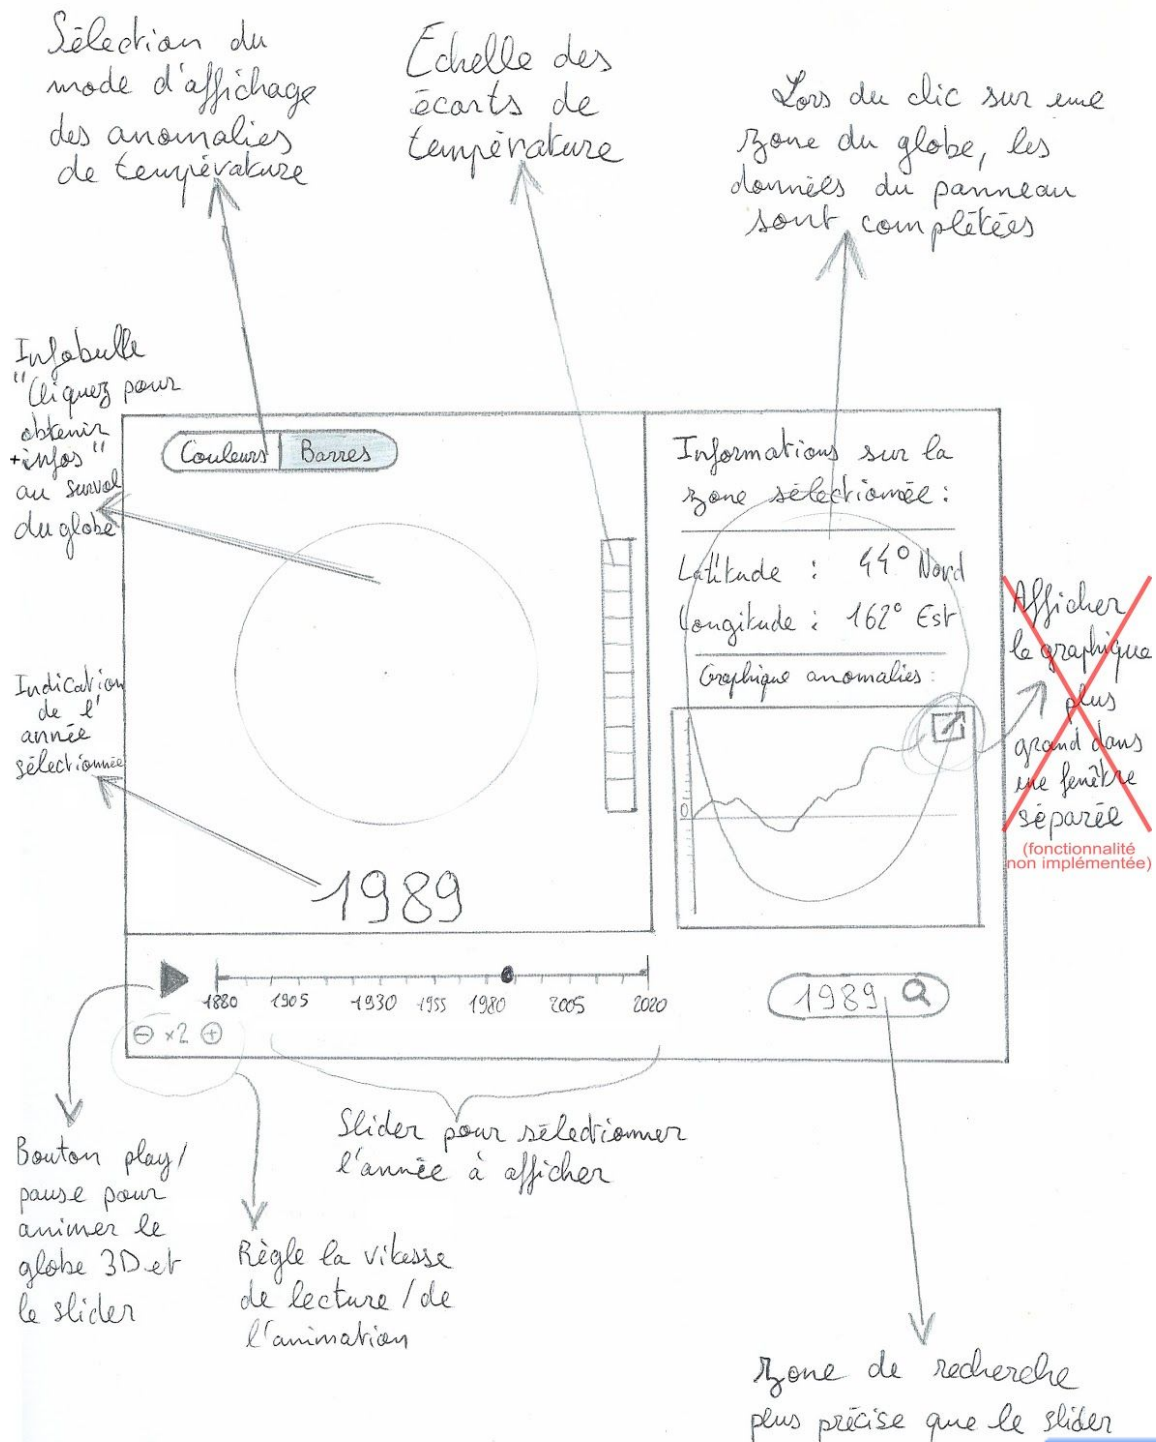 Sélection du
mode d'affichage
des anomalies
de température
Echelle des
écarts de
température
Lors du clic sur une
zone du globe, les
données du panneau
sont complétées
Infobulle
"Cliquez pour
obtenir
+infos"
au survol
du globe
Couleurs
Barres
Informations sur la
zone sélectionnée :
Latitude : 44° Nord
Longitude : 162° Est
Graphique anomalies :
0
Afficher
le graphique
plus
grand dans
une fenêtre
séparée
(fonctionnalité
non implémentée)
Indication
de l'
année
sélectionnée
1989
1880 1905 1930 1955 1980 2005 2020
x2
1989
Slider pour sélectionner
l'année à afficher
Bouton play/
pause pour
animer le
globe 3D et
le slider
Règle la vitesse
de lecture / de
l'animation
zone de recherche
plus précise que le slider